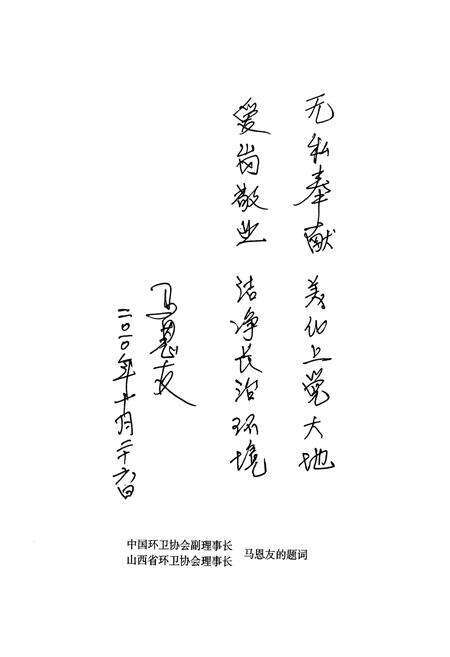 无私奉献 美化上党大地
爱岗敬业 洁净长治环境
马恩友
二〇一〇年十月二十六日
中国环卫协会副理事长
山西省环卫协会理事长
马恩友的题词